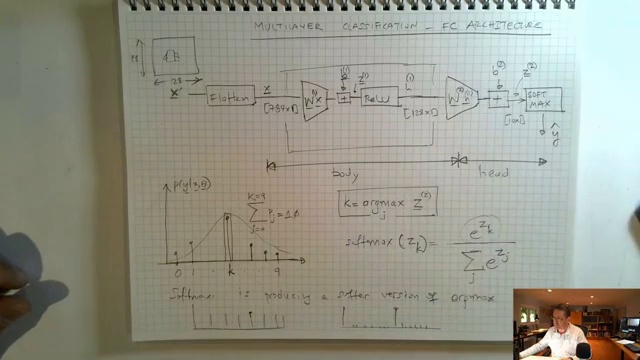 MULTILAYER CLASSIFICATION - FC ARCHITECTURE
28
28
X Flatten x [784x1] W⁽¹⁾x + b⁽¹⁾ z⁽¹⁾ ReLU h⁽¹⁾ [128x1] W⁽²⁾h + b⁽²⁾ z⁽²⁾ [10x1] SOFT MAX
ŷ
body head
p(y|x,θ)
K=9 Σ j=0 Pj = 1.0
K = argmax j z⁽²⁾
softmax (z_k) = e^{z_k} / Σ_j e^{z_j}
0 1 k 9
Softmax is producing a softer version of argmax